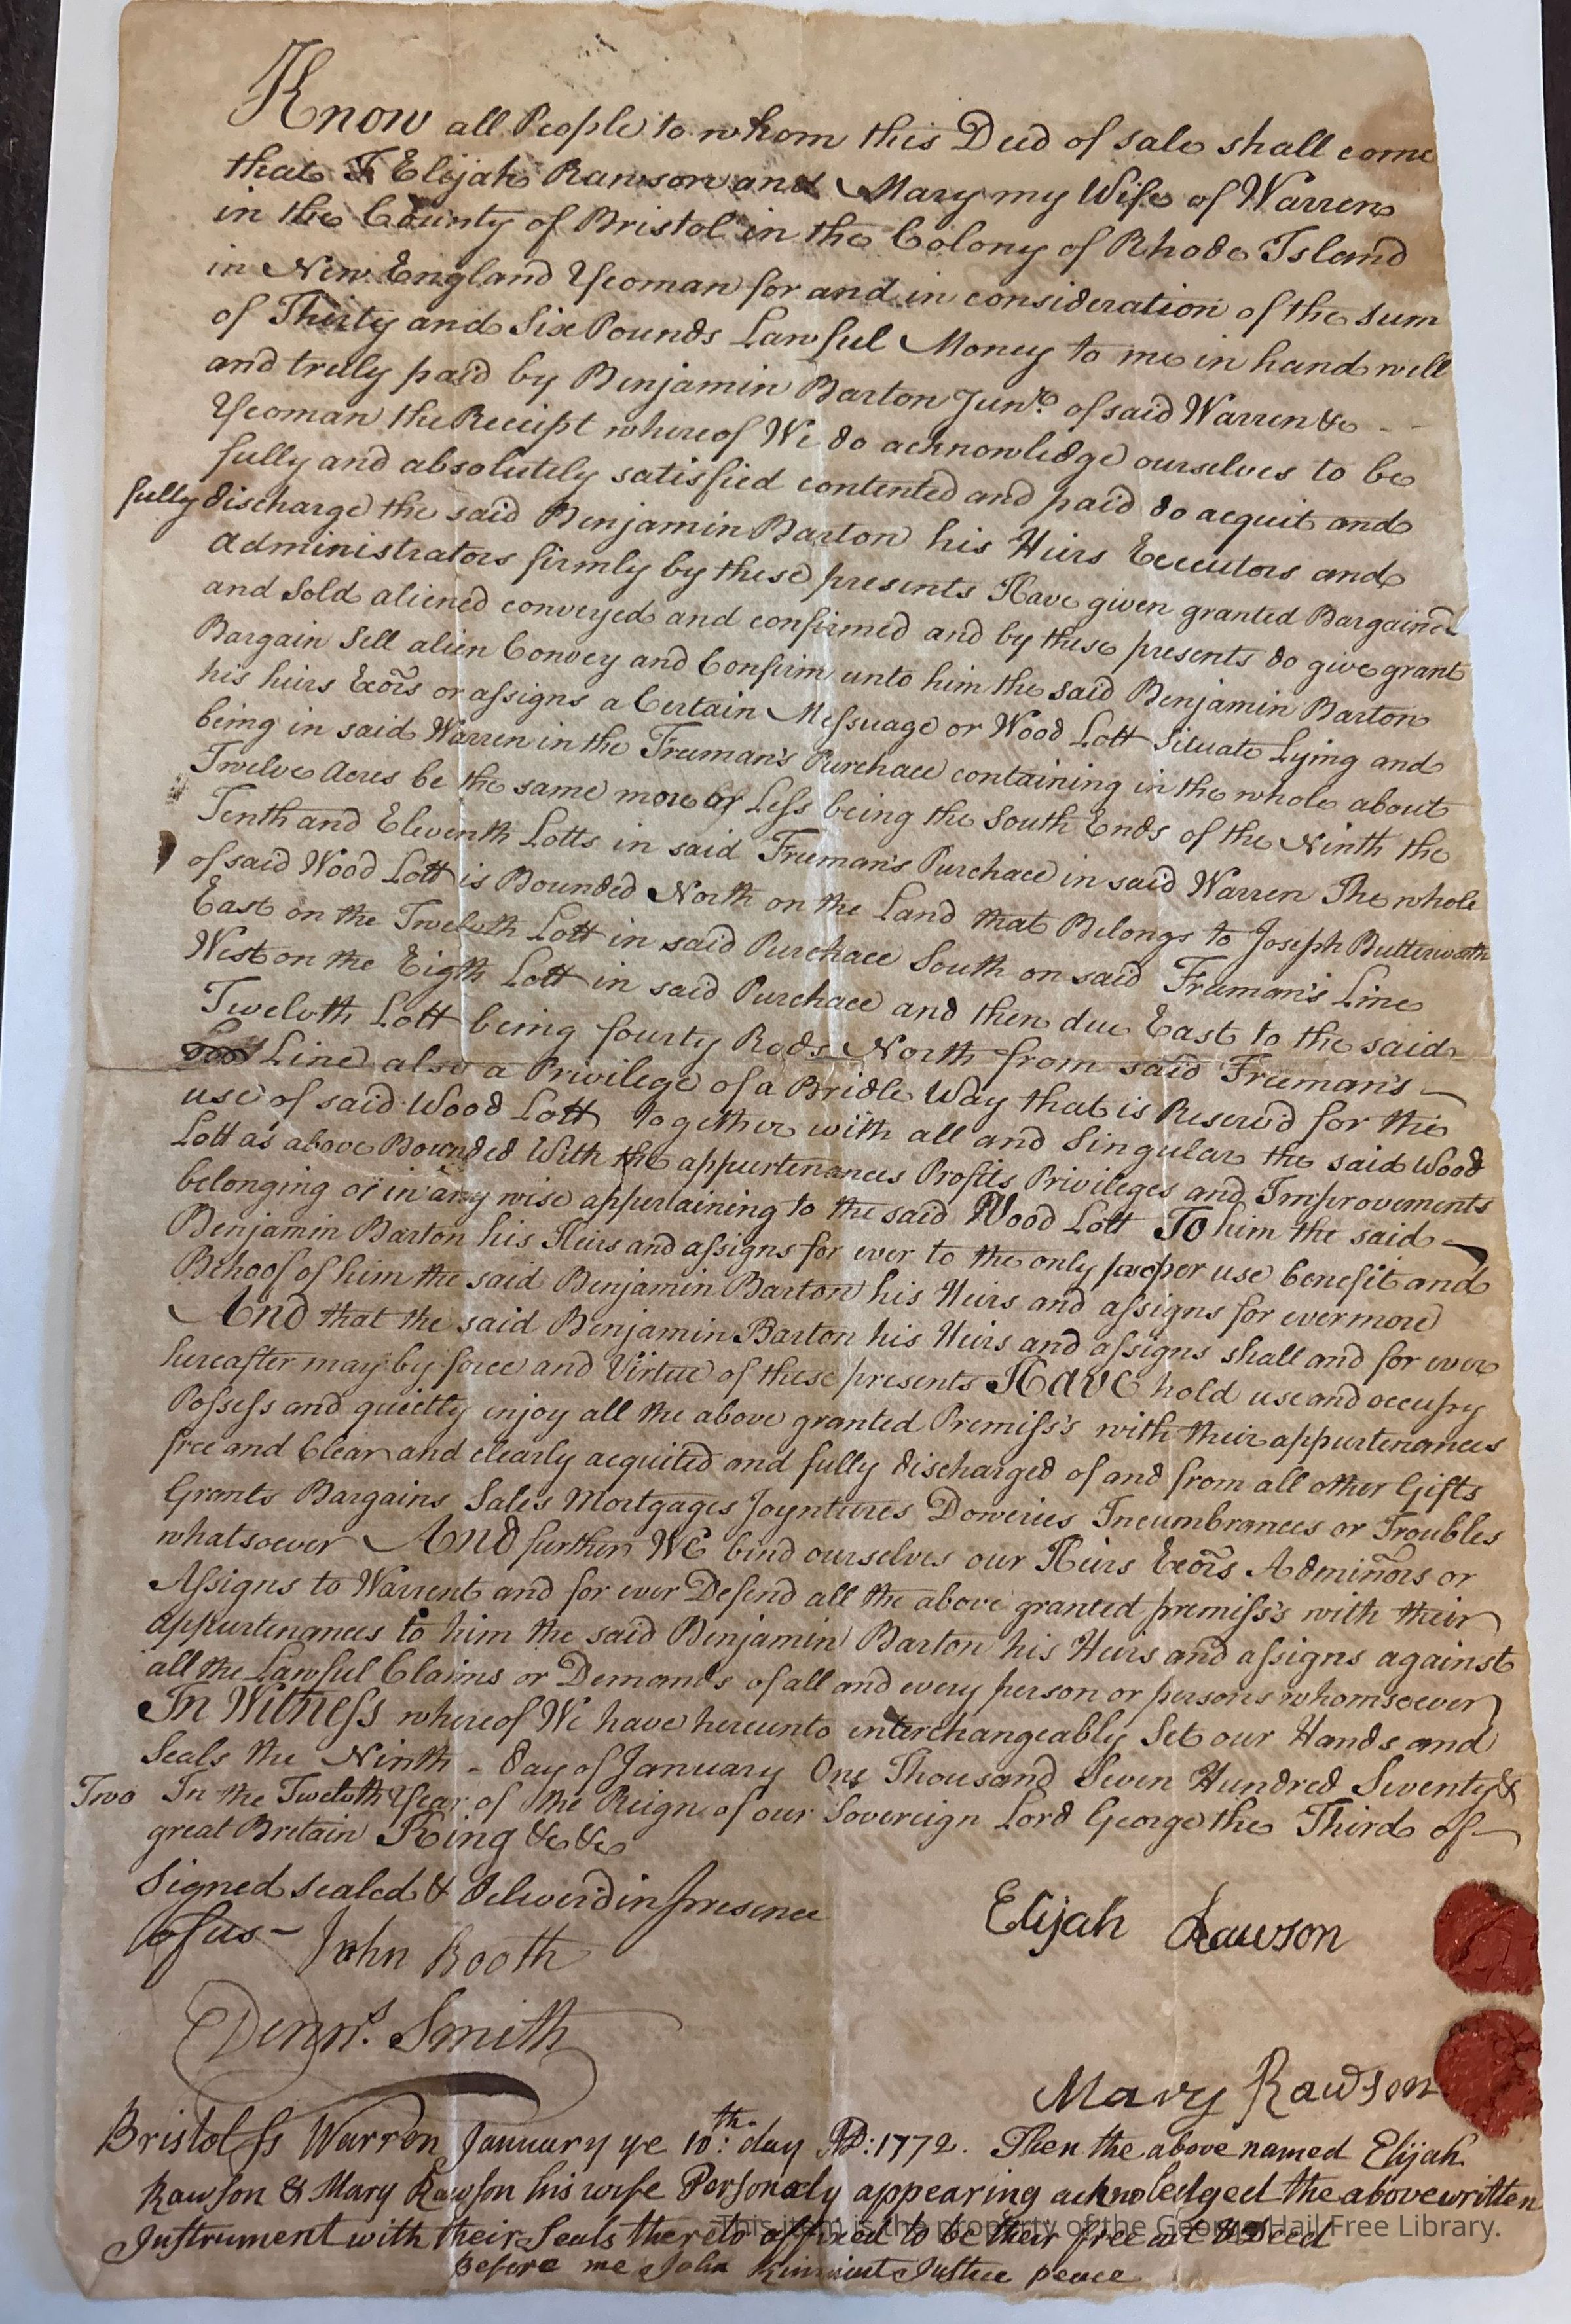 Know all People to whom this Deed of sale shall come
that I Elijah Rawson and Mary my Wife of Warren
in the County of Bristol in the Colony of Rhode Island
in New England Yeoman for and in consideration of the sum
of Thirty and Six Pounds Lawful Money to me in hand well
and truly paid by Benjamin Barton Junr. of said Warren &c
Yeoman the Receipt whereof We do acknowledge ourselves to be
fully and absolutely satisfied contented and paid do acquit and
fully discharge the said Benjamin Barton his Heirs Executors and
Administrators firmly by these presents Have given granted Bargained
and Sold aliened conveyed and confirmed and by these presents do give grant
Bargain Sell alien Convey and Confirm unto him the said Benjamin Barton
his heirs Exors or assigns a Certain Messuage or Wood Lott Situate Lying and
being in said Warren in the Freeman's Purchace containing in the whole about
Twelve Acres be the same more or Less being the South Ends of the Ninth the
Tenth and Eleventh Lotts in said Freeman's Purchace in said Warren The whole
of said Wood Lott is Bounded North on the Land that Belongs to Joseph Butterworth
East on the Twelvth Lott in said Purchace South on said Freeman's Line
West on the Eigth Lott in said Purchace and then due East to the said
Twelvth Lott being fourty Rods North from said Freeman's
Line also a Privilege of a Bridle Way that is Reserv'd for the
use of said Wood Lott Together with all and Singular the said Wood
Lott as above Bounded With the appurtenances Profits Privileges and Improvements
belonging or in any wise appertaining to the said Wood Lott To him the said
Benjamin Barton his Heirs and assigns for ever to the only proper use benefit and
Behoof of him the said Benjamin Barton his Heirs and assigns for evermore
And that the said Benjamin Barton his Heirs and assigns shall and for ever
hereafter may by force and Virtue of these presents Have hold use and occupy
Possess and quietly enjoy all the above granted Premiss's with their appurtenances
free and Clear and clearly acquited and fully discharged of and from all other Gifts
Grants Bargains Sales Mortgages Joyntures Doweries Incumbrances or Troubles
whatsoever And further We bind ourselves our Heirs Exors Adminors or
Assigns to Warrent and for ever Defend all the above granted premiss's with their
appurtenances to him the said Benjamin Barton his Heirs and assigns against
all the Lawful Claims or Demands of all and every person or persons whomsoever
In Witness whereof We have hereunto interchangeably Set our Hands and
Seals the Ninth - day of January One Thousand Seven Hundred Seventy &
Two In the Twelvth Year of the Reign of our Sovereign Lord George the Third of
great Britain King &c &c
Signed sealed & Deliver'd in presence
of us - John Booth
Elijah Rawson
Smith
Mary Rawson
Bristol Ss Warren January ye 10th: day AD: 1772. Then the above named Elijah
Rawson & Mary Rawson his wife Personaly appearing acknoledged the above written
Instrument with their Seals thereto affixed to be their free act & Deed
Before me John Kinnicut Justice peace
This item is the property of the George Hail Free Library.